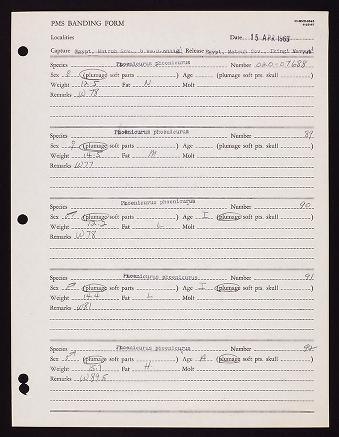 PMS BANDING FORM
Localities Date 15 APR 1969
Capture Egypt, Matruh Gov., Release Egypt, Matruh Gov.,
Species Phoenicurus phoenicurus Number 020-07688
Sex ♀ (plumage soft parts ) Age (plumage soft pts. skull )
Weight 12.5 Fat N Molt
Remarks W 78
Species Phoenicurus phoenicurus Number 89
Sex ♀ (plumage soft parts ) Age (plumage soft pts. skull )
Weight 14.5 Fat M Molt
Remarks W77
Species Phoenicurus phoenicurus Number 90
Sex ♂ (plumage soft parts ) Age I (plumage soft pts. skull )
Weight 12.2 Fat L Molt
Remarks W78
Species Phoenicurus phoenicurus Number 91
Sex ♂ (plumage soft parts ) Age I (plumage soft pts. skull )
Weight 14.4 Fat L Molt
Remarks W81
Species Phoenicurus phoenicurus Number 92
Sex ♂ (plumage soft parts ) Age A (plumage soft pts. skull )
Weight Fat H Molt
Remarks W89.5